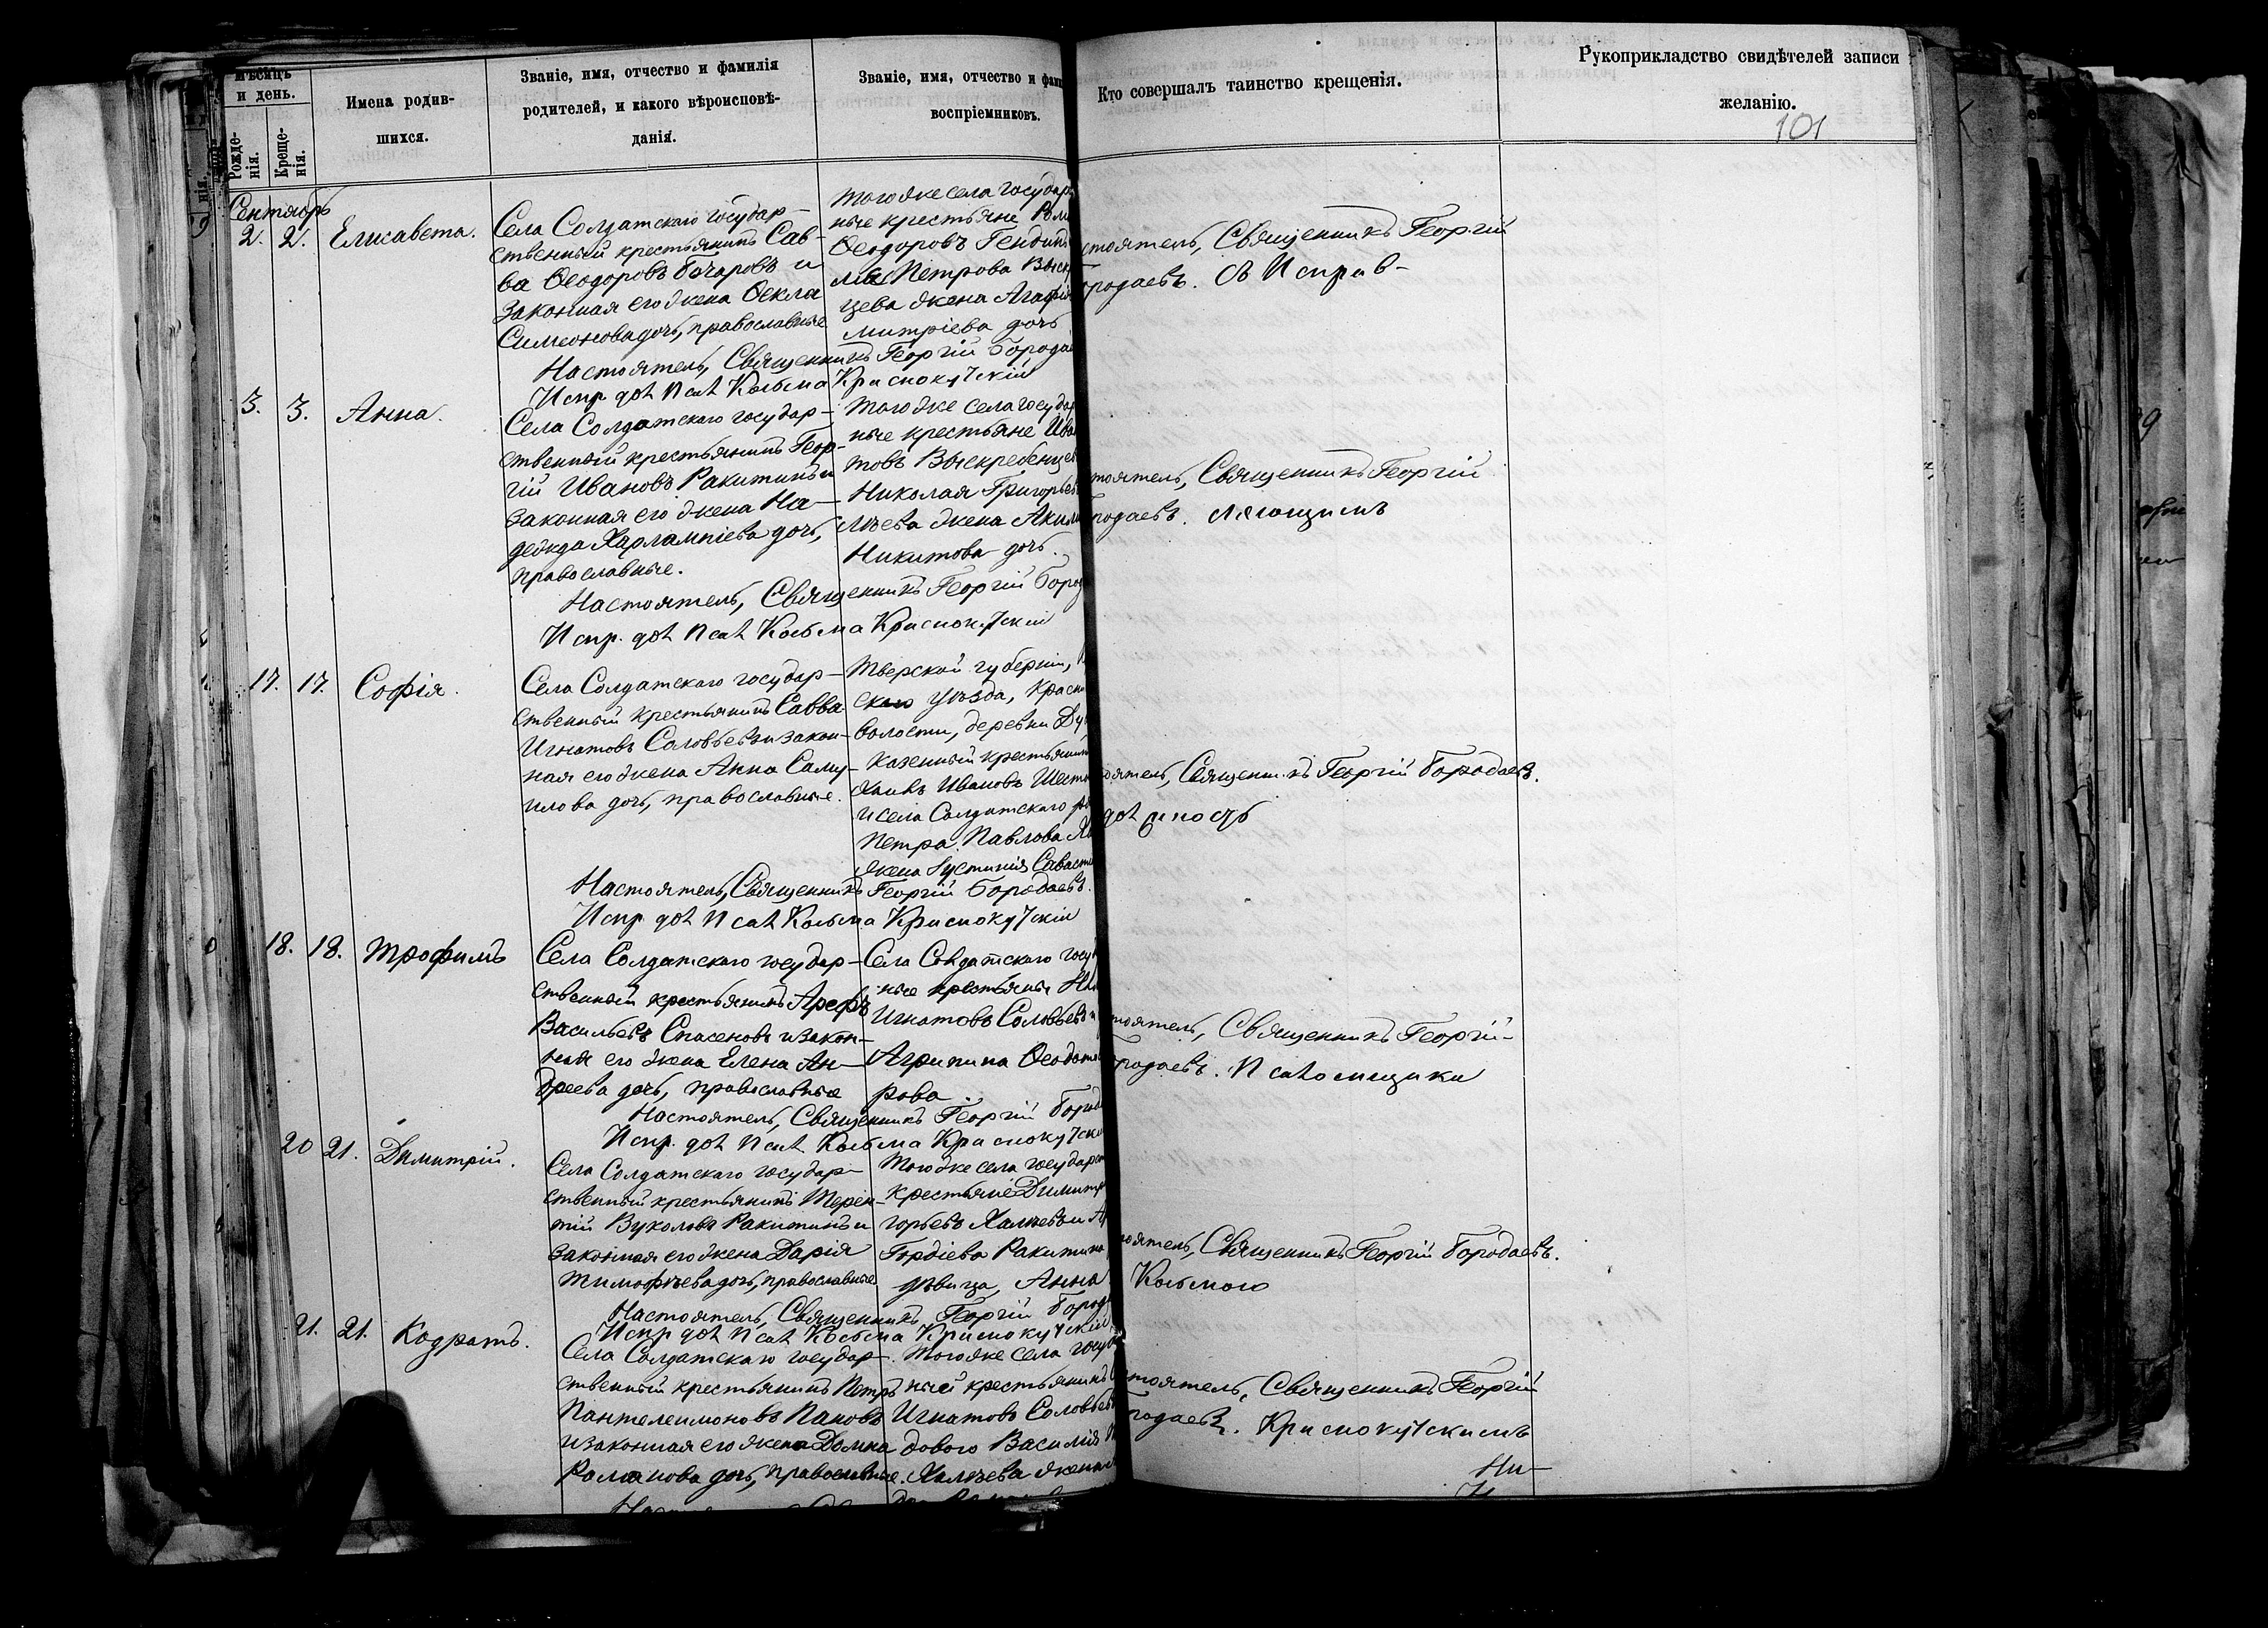 Мѣсяцъ
и день.
Рожде-
нія.
Креще-
нія.
Имена родив-
шихся.
Званіе, имя, отчество и фамилія
родителей, и какого вѣроисповѣ-
данія.
Званіе, имя, отчество и фам
воспріемниковъ.
Кто совершалъ таинство крещенія.
Рукоприкладство свидѣтелей записи
желанію.
101
Сентябрь
2. 2. Елисавета.
Села Солдатскаго государ-
ственный крестьянинъ Сав-
ва Ѳеодоровъ Бочаровъ и
законная его жена Ѳекла
Симеонова дочь, православные
тогоже села государ
ные крестьяне Ром
Ѳеодоровъ Гендин
Петрова Выскр
цева жена Агафія
митріева дочь
стоятель, Священникъ Георгій
ородаевъ. съ Исправ-
Настоятель, Священникъ Георгій Борода
Испр. дол. Псал. Косьма Краснокутскій
3. 3. Анна.
Села Солдатскаго государ-
ственный крестьянинъ Геор-
гій Ивановъ Ракитинъ и
законная его жена На-
дежда Харлампіева дочь,
православные.
тогоже села государ
ные крестьяне Ива
товъ Выскребенцев
Николая Григорьев
лѣева жена Акили
Никитова дочь.
тоятель, Священникъ Георгій
родаевъ. ляющимъ
Настоятель, Священникъ Георгій Бород
Испр. дол. Псал. Косьма Краснокутскій
17. 17. Софія.
Села Солдатскаго государ-
ственный крестьянинъ Савва
Игнатовъ Соловьевъ и закон-
ная его жена Анна Саму-
илова дочь, православные.
Тверской губерніи,
скаго уѣзда, Красн
волости, деревни Ду
казенный крестьянин
Ивановъ Шест
и села Солдатскаго
Петра Павлова
жена Іустинія Савасті
оятель, Священникъ Георгій Бородаевъ.
дол. иность
Настоятель, Священникъ Георгій Бородаевъ.
Испр. дол. Псал. Косьма Краснокутскій
18. 18. Трофимъ
Села Солдатскаго государ-
ственный крестьянинъ Ареѳъ
Васильевъ Спасеновъ и закон-
ная его жена Елена Ан-
дреева дочь, православные
Села Солдатскаго госуд
ные крестьяне Ни
Игнатовъ Соловьевъ и
Агрипина Ѳеодото
рова
тоятель, Священникъ Георгій
родаевъ. Псаломщика
Настоятель, Священникъ Георгій Бород
Испр. дол. Псал. Косьма Краснокутскі
20 21. Димитрій.
Села Солдатскаго государ-
ственный крестьянинъ Терен-
тій Вуколовъ Ракитинъ и
законная его жена Дарія
Тимофѣева дочь, православные
Тогоже села государст
крестьяне Димитр
горьевъ Халѣевъ и
Гордіева Ракитина
дѣвица, Анна
оятель, Священникъ Георгій Бородаевъ.
Косьмою
Настоятель, Священникъ Георгій Бород
Испр. дол. Псал. Косьма Краснокутскій
21. 21. Кодратъ.
Села Солдатскаго государ-
ственный крестьянинъ Петръ
Пантелеимоновъ Пановъ
и законная его жена Домна
Романова дочь, православные.
Тогоже села госуд
ный крестьянинъ
Игнатовъ Соловьев
дового Василія
Халѣева жена
стоятель, Священникъ Георгій
родаевъ. Краснокутскимъ
На-